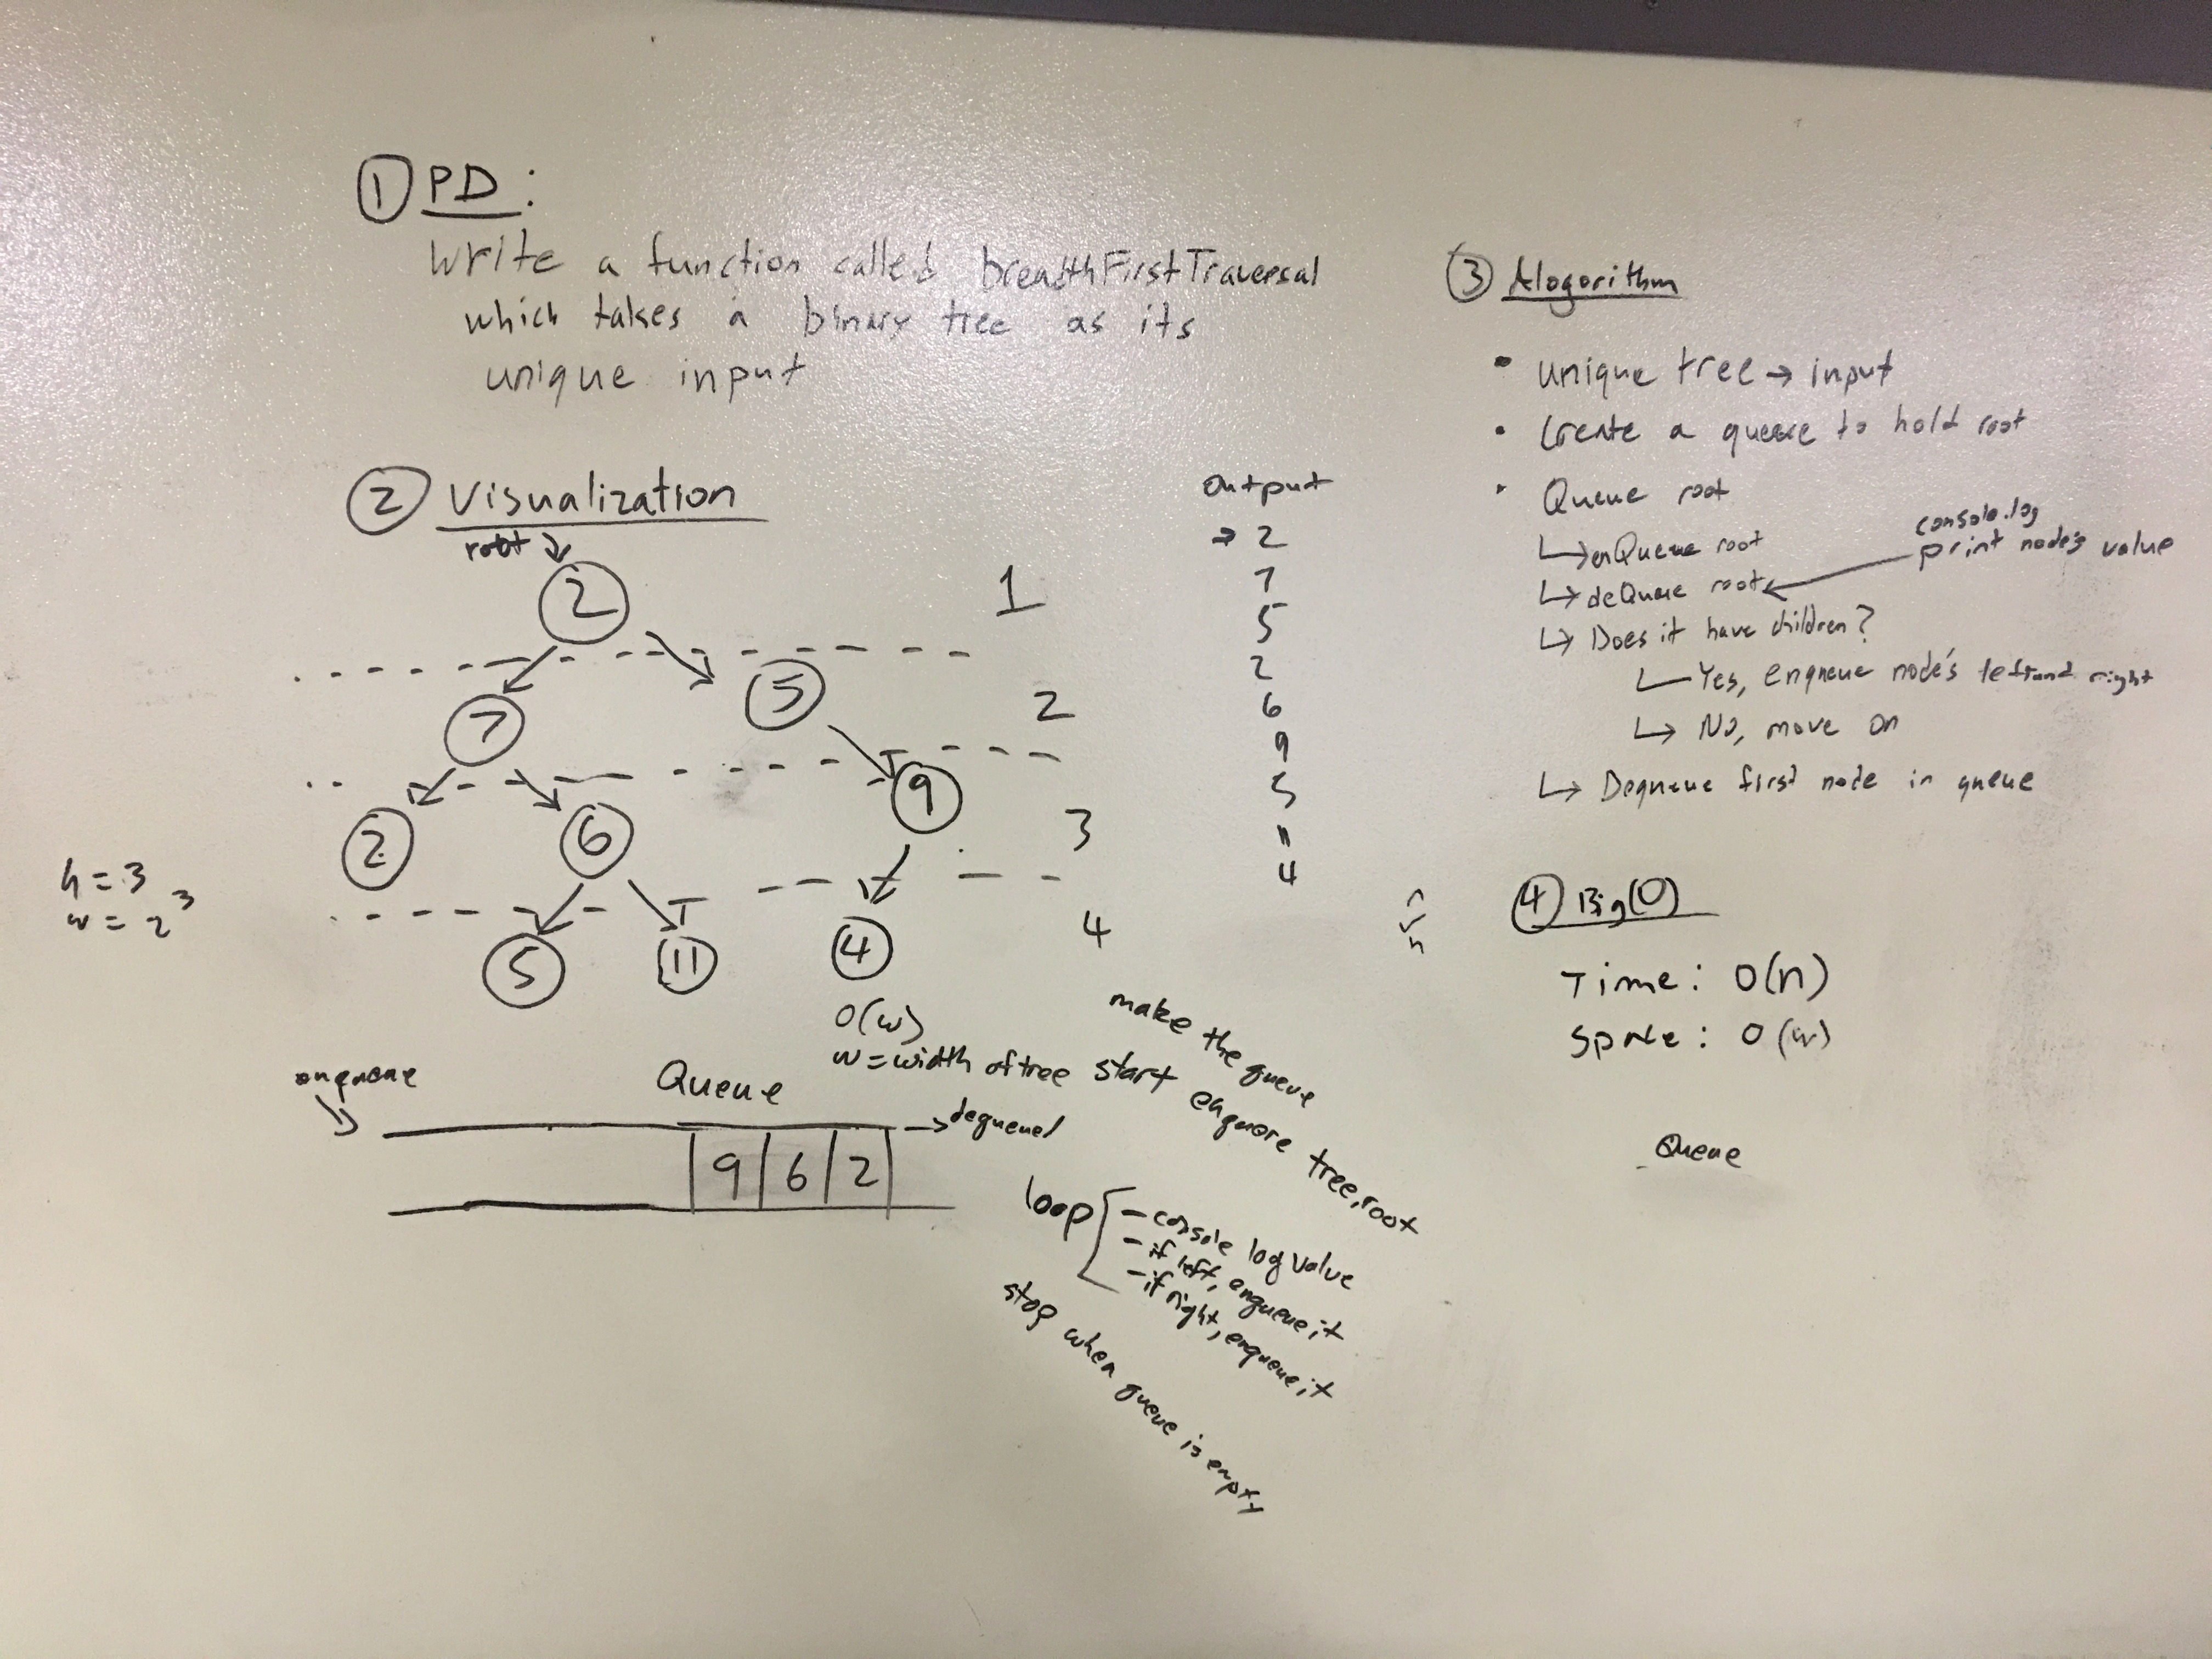 ① PD:
Write a function called breadthFirstTraversal
which takes a binary tree as its
unique input
② Visualization
root
2
1
7
5
2
2
6
9
3
5
11
4
4
h = 3
w = 2³
Output
→ 2
7
5
2
6
9
5
11
4
O(w)
w = width of tree
enqueue
Queue
→ dequeue
9 6 2
make the queue
start enqueue tree.root
loop
- console log value
- if left, enqueue it
- if right, enqueue it
stop when queue is empty
③ Alogorithm
• unique tree → input
• Create a queue to hold root
• Queue root
↳ enQueue root
↳ deQueue root
console.log
print node's value
↳ Does it have children?
↳ Yes, enqueue node's left and right
↳ No, move on
↳ Dequeue first node in queue
④ Big(O)
Time: O(n)
Space: O(w)
Queue